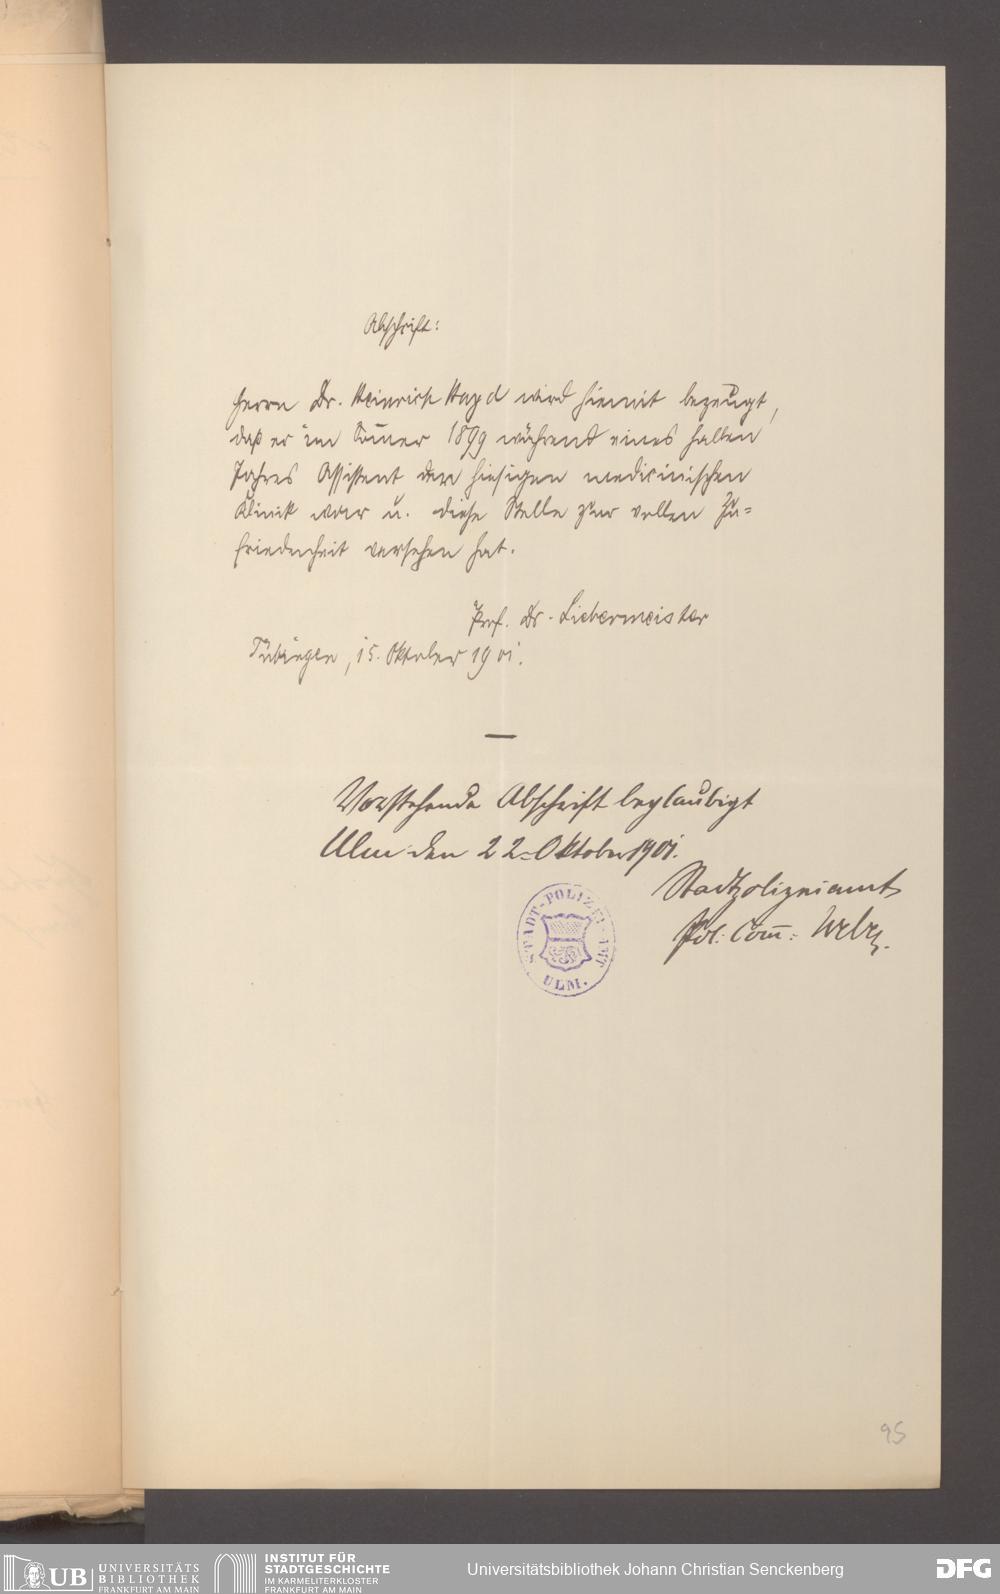 Abschrift:
Herrn Dr. Heinrich Hayd wird hiemit bezeugt,
daß er im Som̄er 1899 während eines halben
Jahres Assistent der hiesigen medicinischen
Klinik war u. diese Stelle zur vollen Zu=
friedenheit versehen hat.
Prof. Dr. Liebermeister
Tübingen, 15. Oktober 1901.
Vorstehende Abschrift beglaubigt
Ulm den 22. Oktober 1901.
Stadtpolizeiamt
Pol. Com̄:
STADT-POLIZEI-AMT
ULM.
95
UB UNIVERSITÄTS
BIBLIOTHEK
FRANKFURT AM MAIN
INSTITUT FÜR
STADTGESCHICHTE
IM KARMELITERKLOSTER
FRANKFURT AM MAIN
Universitätsbibliothek Johann Christian Senckenberg
DFG